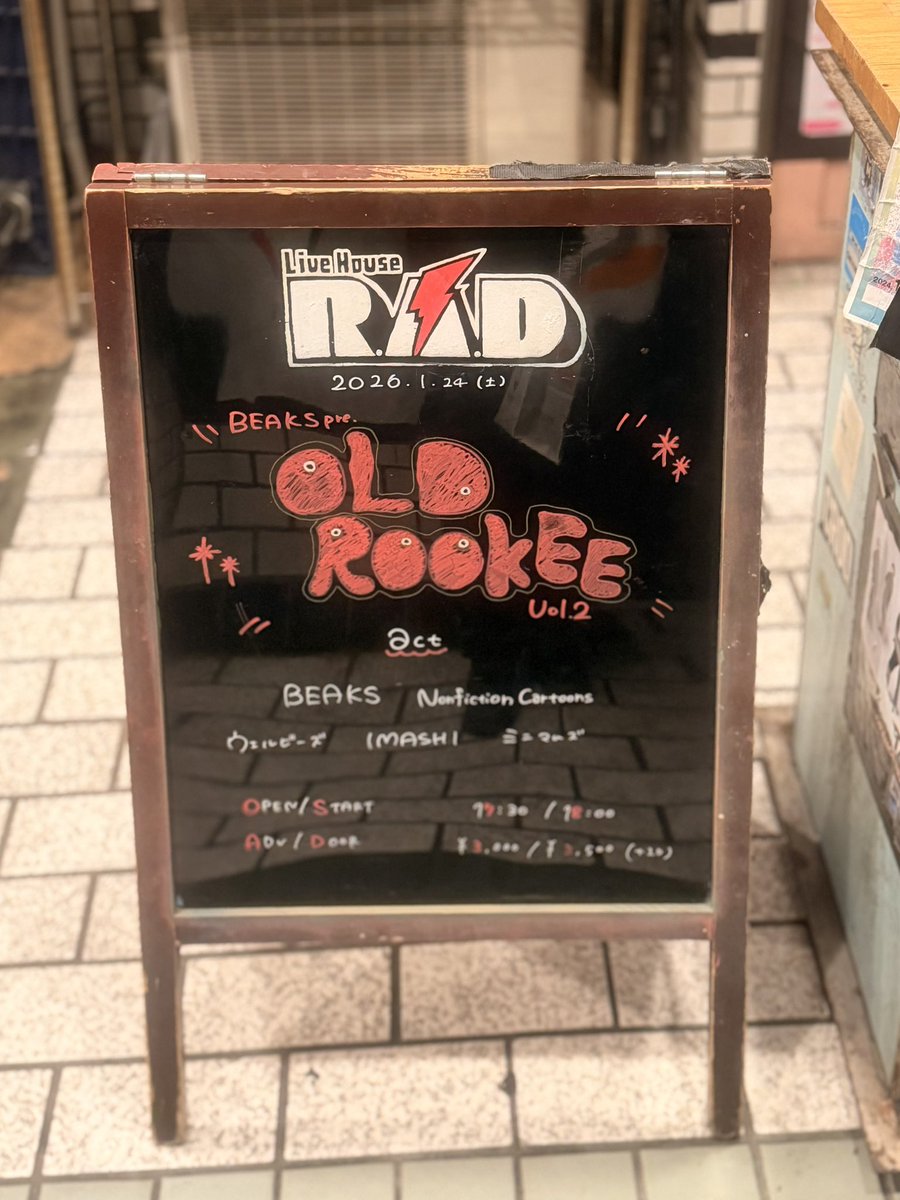 Live House
R.A.D
2026.1.24(土)
BEAKS pre.
OLD
ROOKEE
Vol.2
act
BEAKS Nonfiction Cartoons
ウェルビーズ IMASHI ミニマムズ
OPEN/START 17:30 / 18:00
ADV/DOOR ¥3,000/¥3,500 (+2D)
2024.